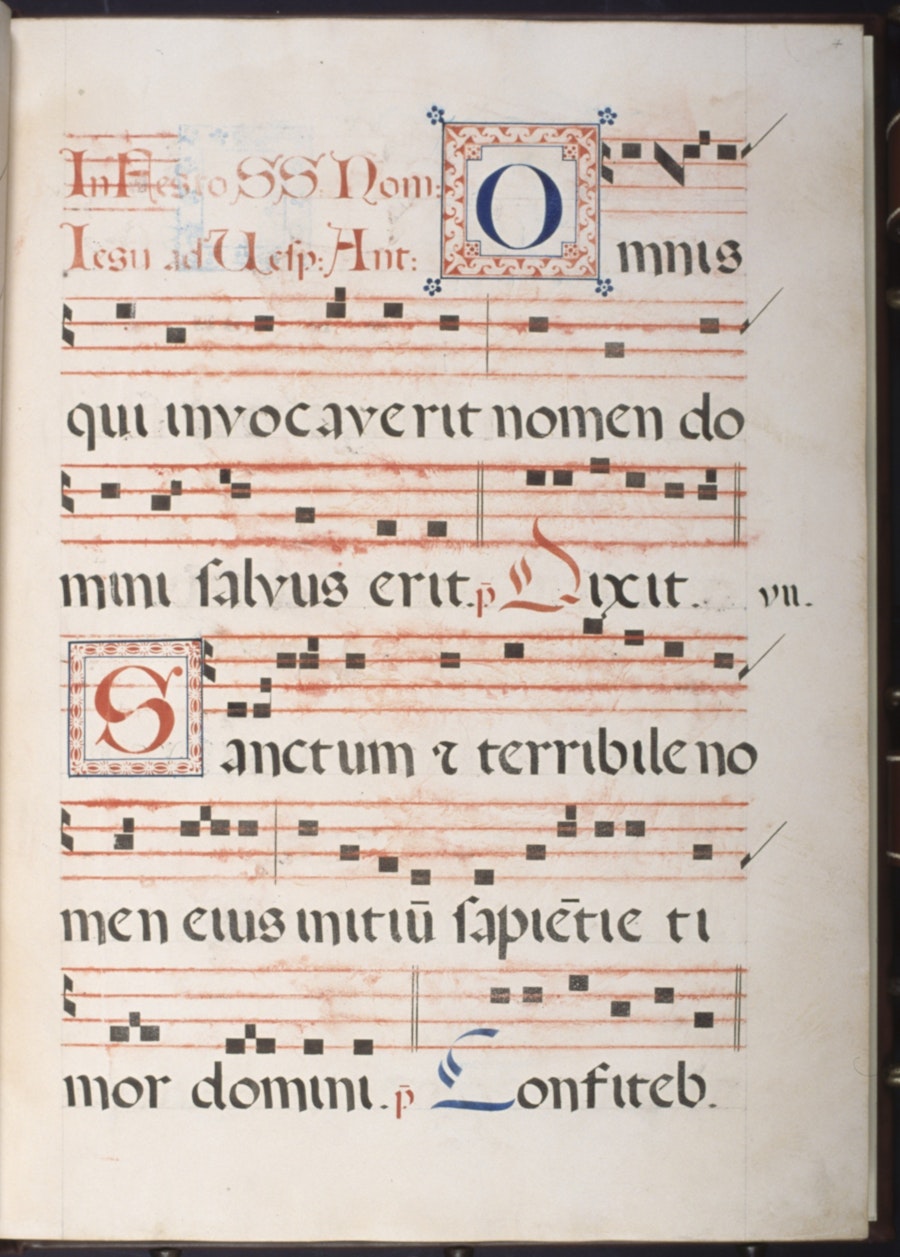 In Festo SS. Nom:
Iesu ad Uesp: Ant:
Omnis
qui invocaverit nomen do
mini salvus erit. p̄ Dixit. vii.
Sanctum ⁊ terribile no
men eius initiū sapiētie ti
mor domini. p̄ Confiteb.